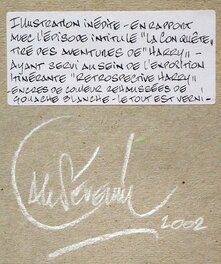 ILLUSTRATION INÉDITE - EN RAPPORT
AVEC L'ÉPISODE INTITULÉ "LA CONQUÊTE"
TIRÉ DES AVENTURES DE "HARRY" -
AYANT SERVI AU SEIN DE L'EXPOSITION
ITINÉRANTE "RETROSPECTIVE HARRY" -
ENCRES DE COULEUR REHAUSSÉES DE
GOUACHE BLANCHE - LE TOUT EST VERNI -
2002